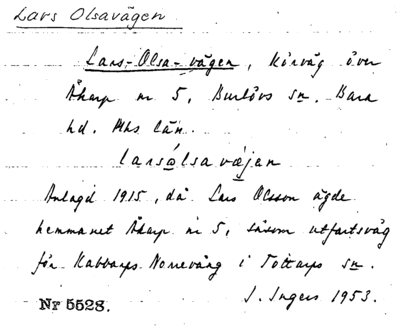 Lars Olsavägen
Lars-Olsa-vägen, körväg över
Åkarp nr 5, Burlövs sn. Bara
hd. Mhs län.
larsålsavæjen
Anlagd 1915, då Lars Olsson ägde
hemmanet Åkarp nr 5, såsom utfartsväg
för Kabbarps Norrevång i Tottarps sn.
Nr 5528. I. Ingers 1953.